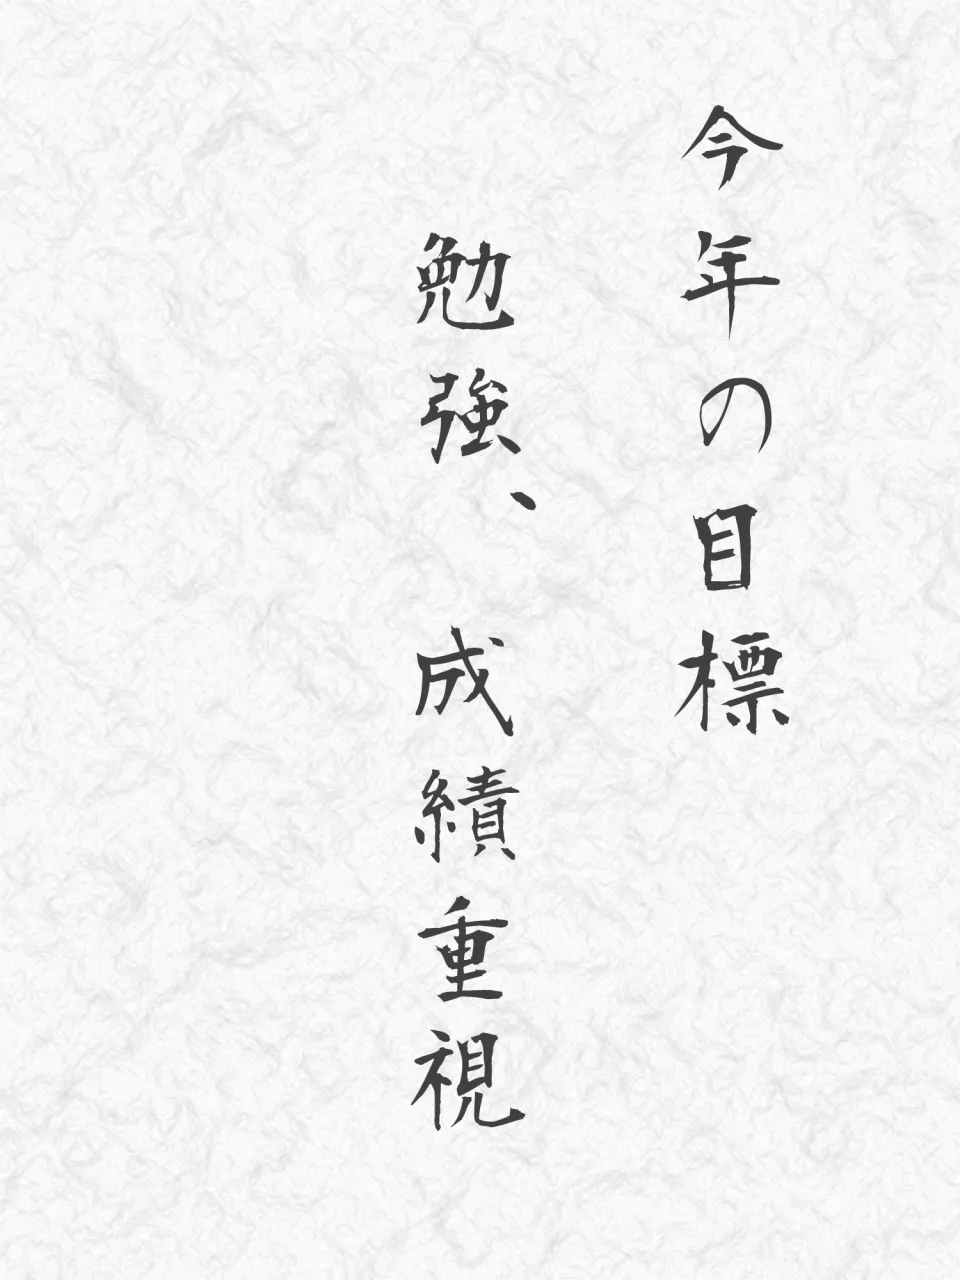 今年の目標
勉強、成績重視